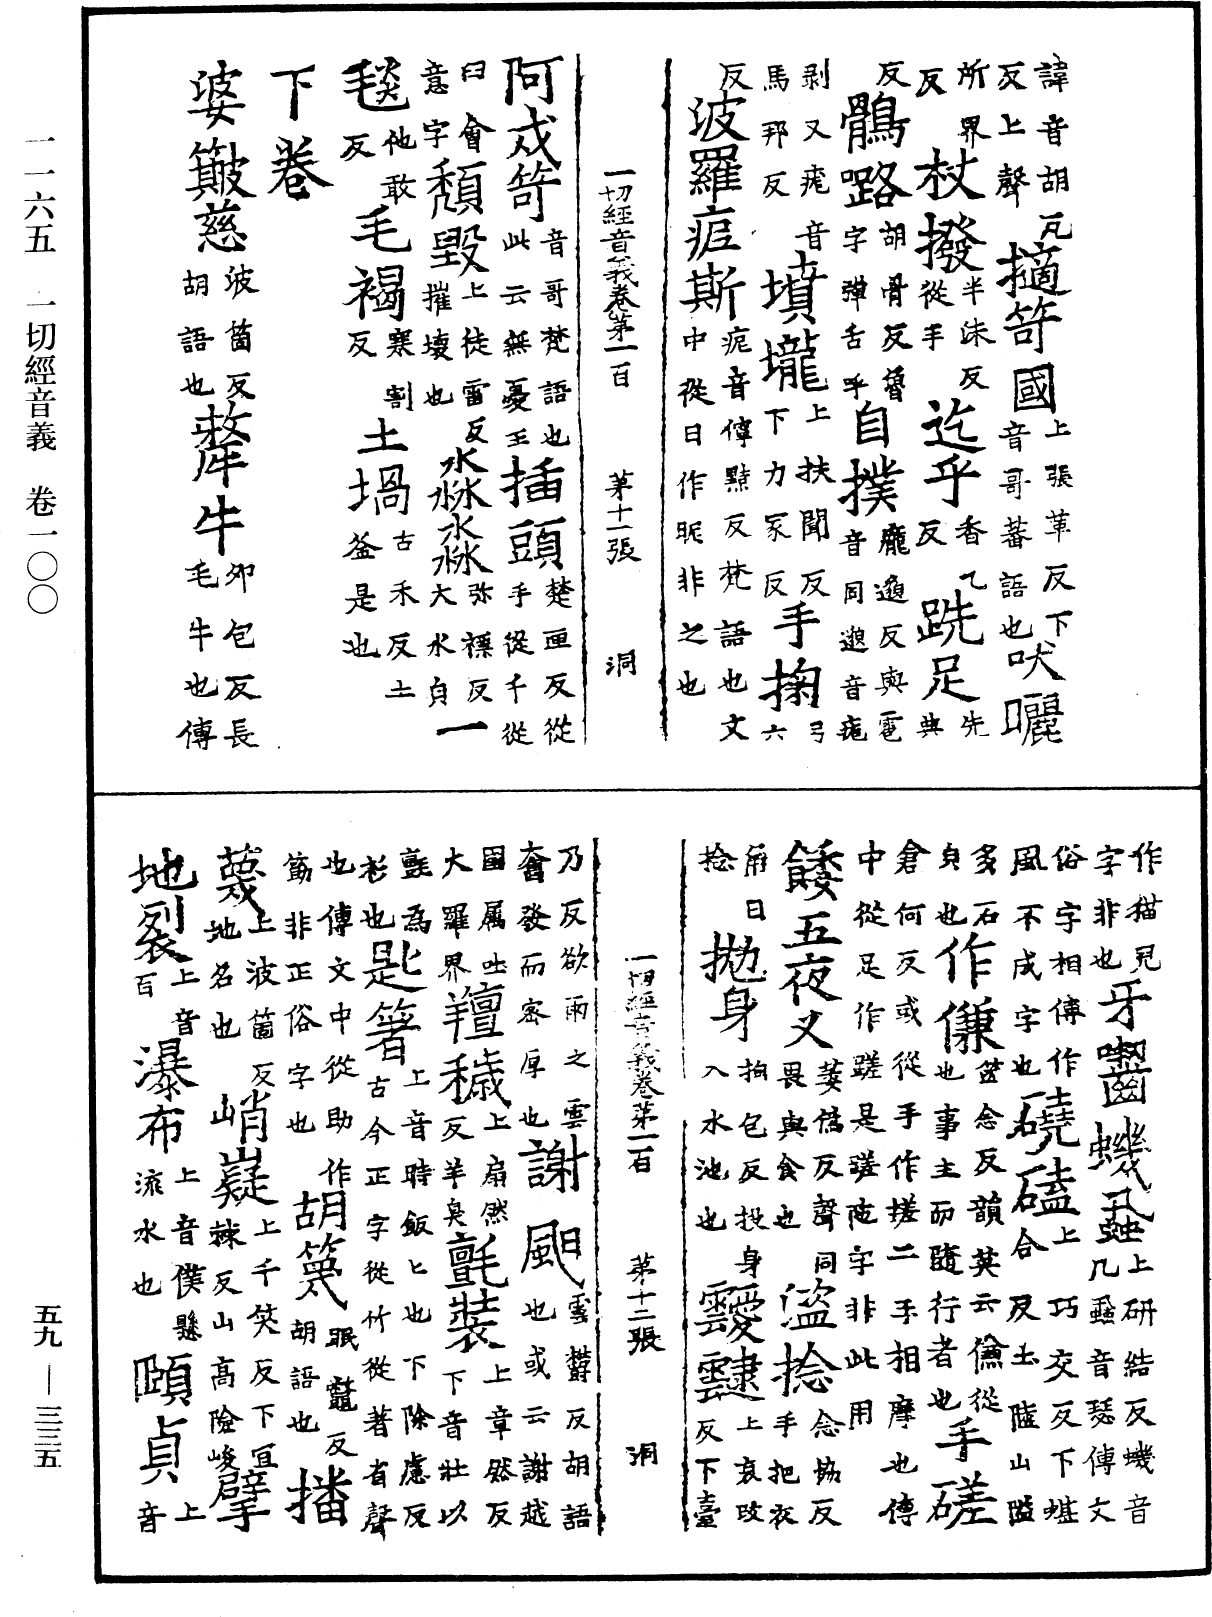 諱音胡瓦
反上聲 擿笴國 上張革反下音哥蕃語也 吠㘑
所界反 杖撥 半沬反從手 迄乎 香乙反 跣足 先典
反 鶻路 胡骨反魯字彈舌乎 自撲 龐邈反與雹音同邈音雹
剥又雹音馬邦反 墳壠 上扶聞反下力冢反 手掬 弓六
反 波羅疪斯 疪音停㸃反梵語也文中從日作昵非之也
一切經音義卷第一百 第十一張 洞
阿戍笴 音哥梵語也此云無憂王 插頭 楚匣反從手從千從
臼會意字 頹毀 上徒雷反摧壞也 水淼水淼 弥褾反大水皃 一
毯 他敢反 毛褐 寒割反 土堝 古禾反土釜是也
下卷
婆簸慈 波箇反胡語也 犛牛 夘包反長毛牛也傳
作猫皃字非也 牙齧 蟣虱 上研結反蟣音几蝨音瑟傳文
俗字相傳作風不成字也 磽磕 上巧交反下堪合反土陸山㟁
多石皃也 作傔 篋念反韻英云傔從也事主而隨行者也 手磋
倉何反或從手作搓二手相摩也傳中從足作蹉是蹉陁字非此用
餧五夜叉 萎僞反聲同畏與食也 盜捻 念協反手把衣
角曰捻 抛身 拘包反投身入水池也 靉靆 上哀改反下臺
一切經音義卷第一百 第十二張 洞
乃反欲雨之雲奮發而密厚也 謝䫻 雲欝反胡語也或云謝越
國属吐大羅界 羶穢 上扇然反羊臭 氈裝 上章然反下音壯以
氈為衫也 匙箸 上音時飯匕也下除慮反古今正字從竹從著省聲
也傳文中從助作筯非正俗字也 胡篾 眠鼈反胡語也 播
蔑 上波箇反地名也 峭嶷 上千笑反下冝棘反山高險峻 擘
地裂 上音百 瀑布 上音僕懸流水也 頤貞 上音
一一六五 一切經音義 卷一〇〇
五九—三三五